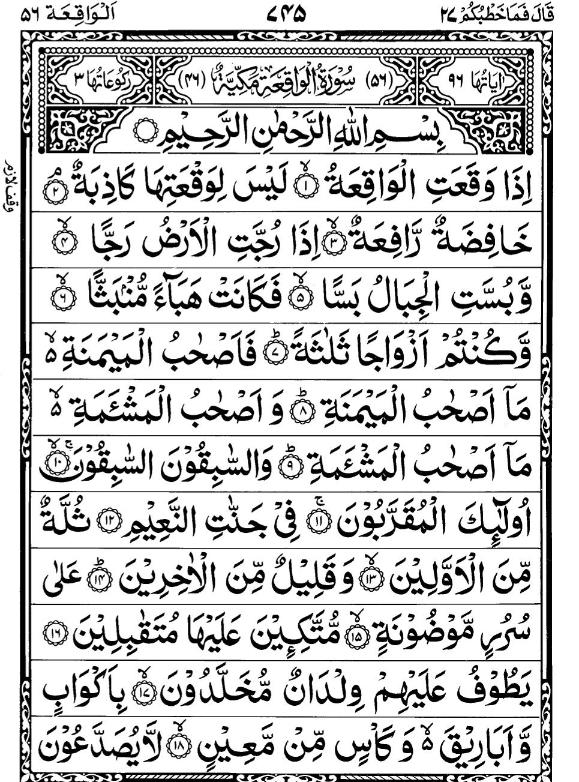 قَالَ فَمَا خَطْبُكُمْ ٢٧ ٧٤٥ اَلْوَاقِعَة ٥٦
اٰيَاتُهَا ٩٦ (٥٦) سُوْرَةُ الْوَاقِعَةِ مَكِّيَّةٌ (٤٦) رُكُوْعَاتُهَا ٣
بِسْمِ اللّٰهِ الرَّحْمٰنِ الرَّحِيْمِ
اِذَا وَقَعَتِ الْوَاقِعَةُ ۙ‏﴿١﴾ لَيْسَ لِوَقْعَتِهَا كَاذِبَةٌ ۘ‏﴿٢﴾
وقف لازم
خَافِضَةٌ رَّافِعَةٌ ۙ‏﴿٣﴾ اِذَا رُجَّتِ الْاَرْضُ رَجًّا ۙ‏﴿٤﴾
وَّبُسَّتِ الْجِبَالُ بَسًّا ۙ‏﴿٥﴾ فَكَانَتْ هَبَآءً مُّنْۢبَثًّا ۙ‏﴿٦﴾
وَّكُنْتُمْ اَزْوَاجًا ثَلٰثَةً ؕ‏﴿٧﴾ فَاَصْحٰبُ الْمَيْمَنَةِ ۙ۬
مَاۤ اَصْحٰبُ الْمَيْمَنَةِ ؕ‏﴿٨﴾ وَ اَصْحٰبُ الْمَشْئَمَةِ ۙ۬
مَاۤ اَصْحٰبُ الْمَشْئَمَةِ ؕ‏﴿٩﴾ وَالسّٰبِقُوْنَ السّٰبِقُوْنَ ۚۙ‏﴿١٠﴾
اُولٰٓئِكَ الْمُقَرَّبُوْنَ ۚ‏﴿١١﴾ فِيْ جَنّٰتِ النَّعِيْمِ ﴿١٢﴾ ثُلَّةٌ
مِّنَ الْاَوَّلِيْنَ ۙ‏﴿١٣﴾ وَ قَلِيْلٌ مِّنَ الْاٰخِرِيْنَ ؕ‏﴿١٤﴾ عَلٰى
سُرُرٍ مَّوْضُوْنَةٍ ۙ‏﴿١٥﴾ مُّتَّكِـِٕيْنَ عَلَيْهَا مُتَقٰبِلِيْنَ ﴿١٦﴾
يَطُوْفُ عَلَيْهِمْ وِلْدَانٌ مُّخَلَّدُوْنَ ۙ‏﴿١٧﴾ بِاَكْوَابٍ
وَّ اَبَارِيْقَ ۙ۬ وَ كَاْسٍ مِّنْ مَّعِيْنٍ ۙ‏﴿١٨﴾ لَّا يُصَدَّعُوْنَ